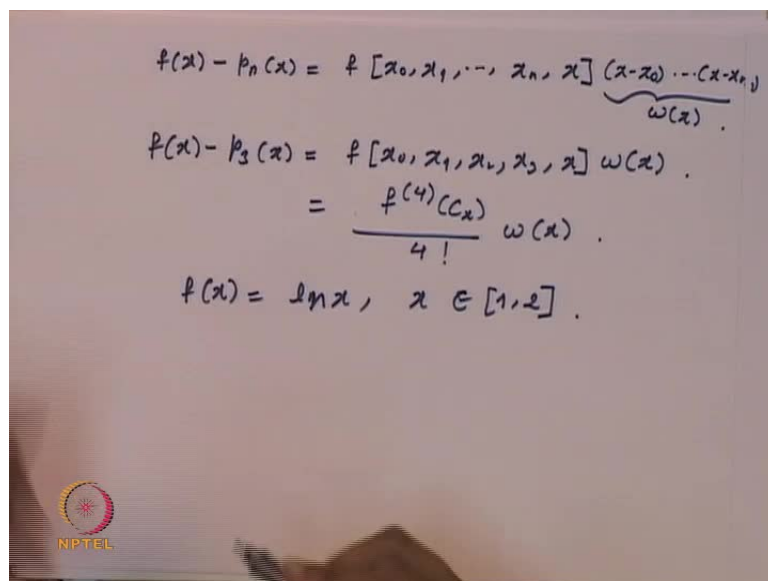 f(x) - pn(x) = f [x0, x1, ..., xn, x] (x-x0) ... (x-xn)
w(x) .
f(x) - p3(x) = f [x0, x1, x2, x3, x] w(x) .
= f^(4)(cx) / 4! w(x) .
f(x) = ln x, x ∈ [1, 2] .
NPTEL